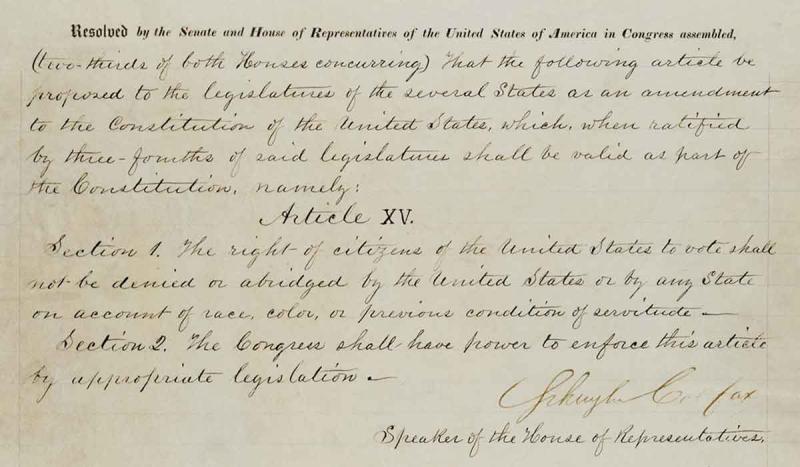 Resolved by the Senate and House of Representatives of the United States of America in Congress assembled,
(two-thirds of both Houses concurring) That the following article be
proposed to the legislatures of the several States as an amendment
to the Constitution of the United States, which, when ratified
by three-fourths of said legislatures shall be valid as part of
the Constitution, namely:
Article XV.
Section 1. The right of citizens of the United States to vote shall
not be denied or abridged by the United States or by any State
on account of race, color, or previous condition of servitude —
Section 2. The Congress shall have power to enforce this article
by appropriate legislation —
Schuyler Colfax
Speaker of the House of Representatives.